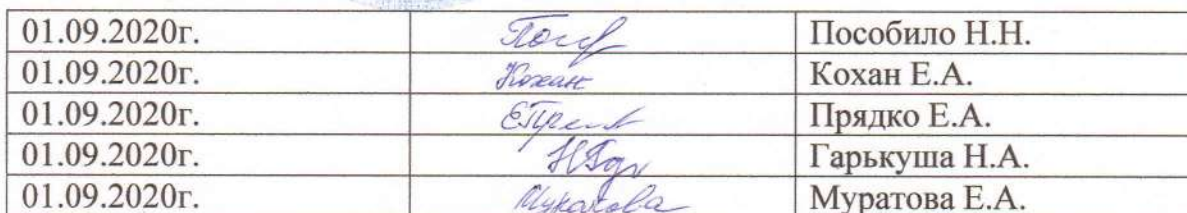 01.09.2020г. Пособило Н.Н.
01.09.2020г. Кохан Кохан Е.А.
01.09.2020г. Прядко Е.А.
01.09.2020г. Гарькуша Н.А.
01.09.2020г. Муратова Е.А.